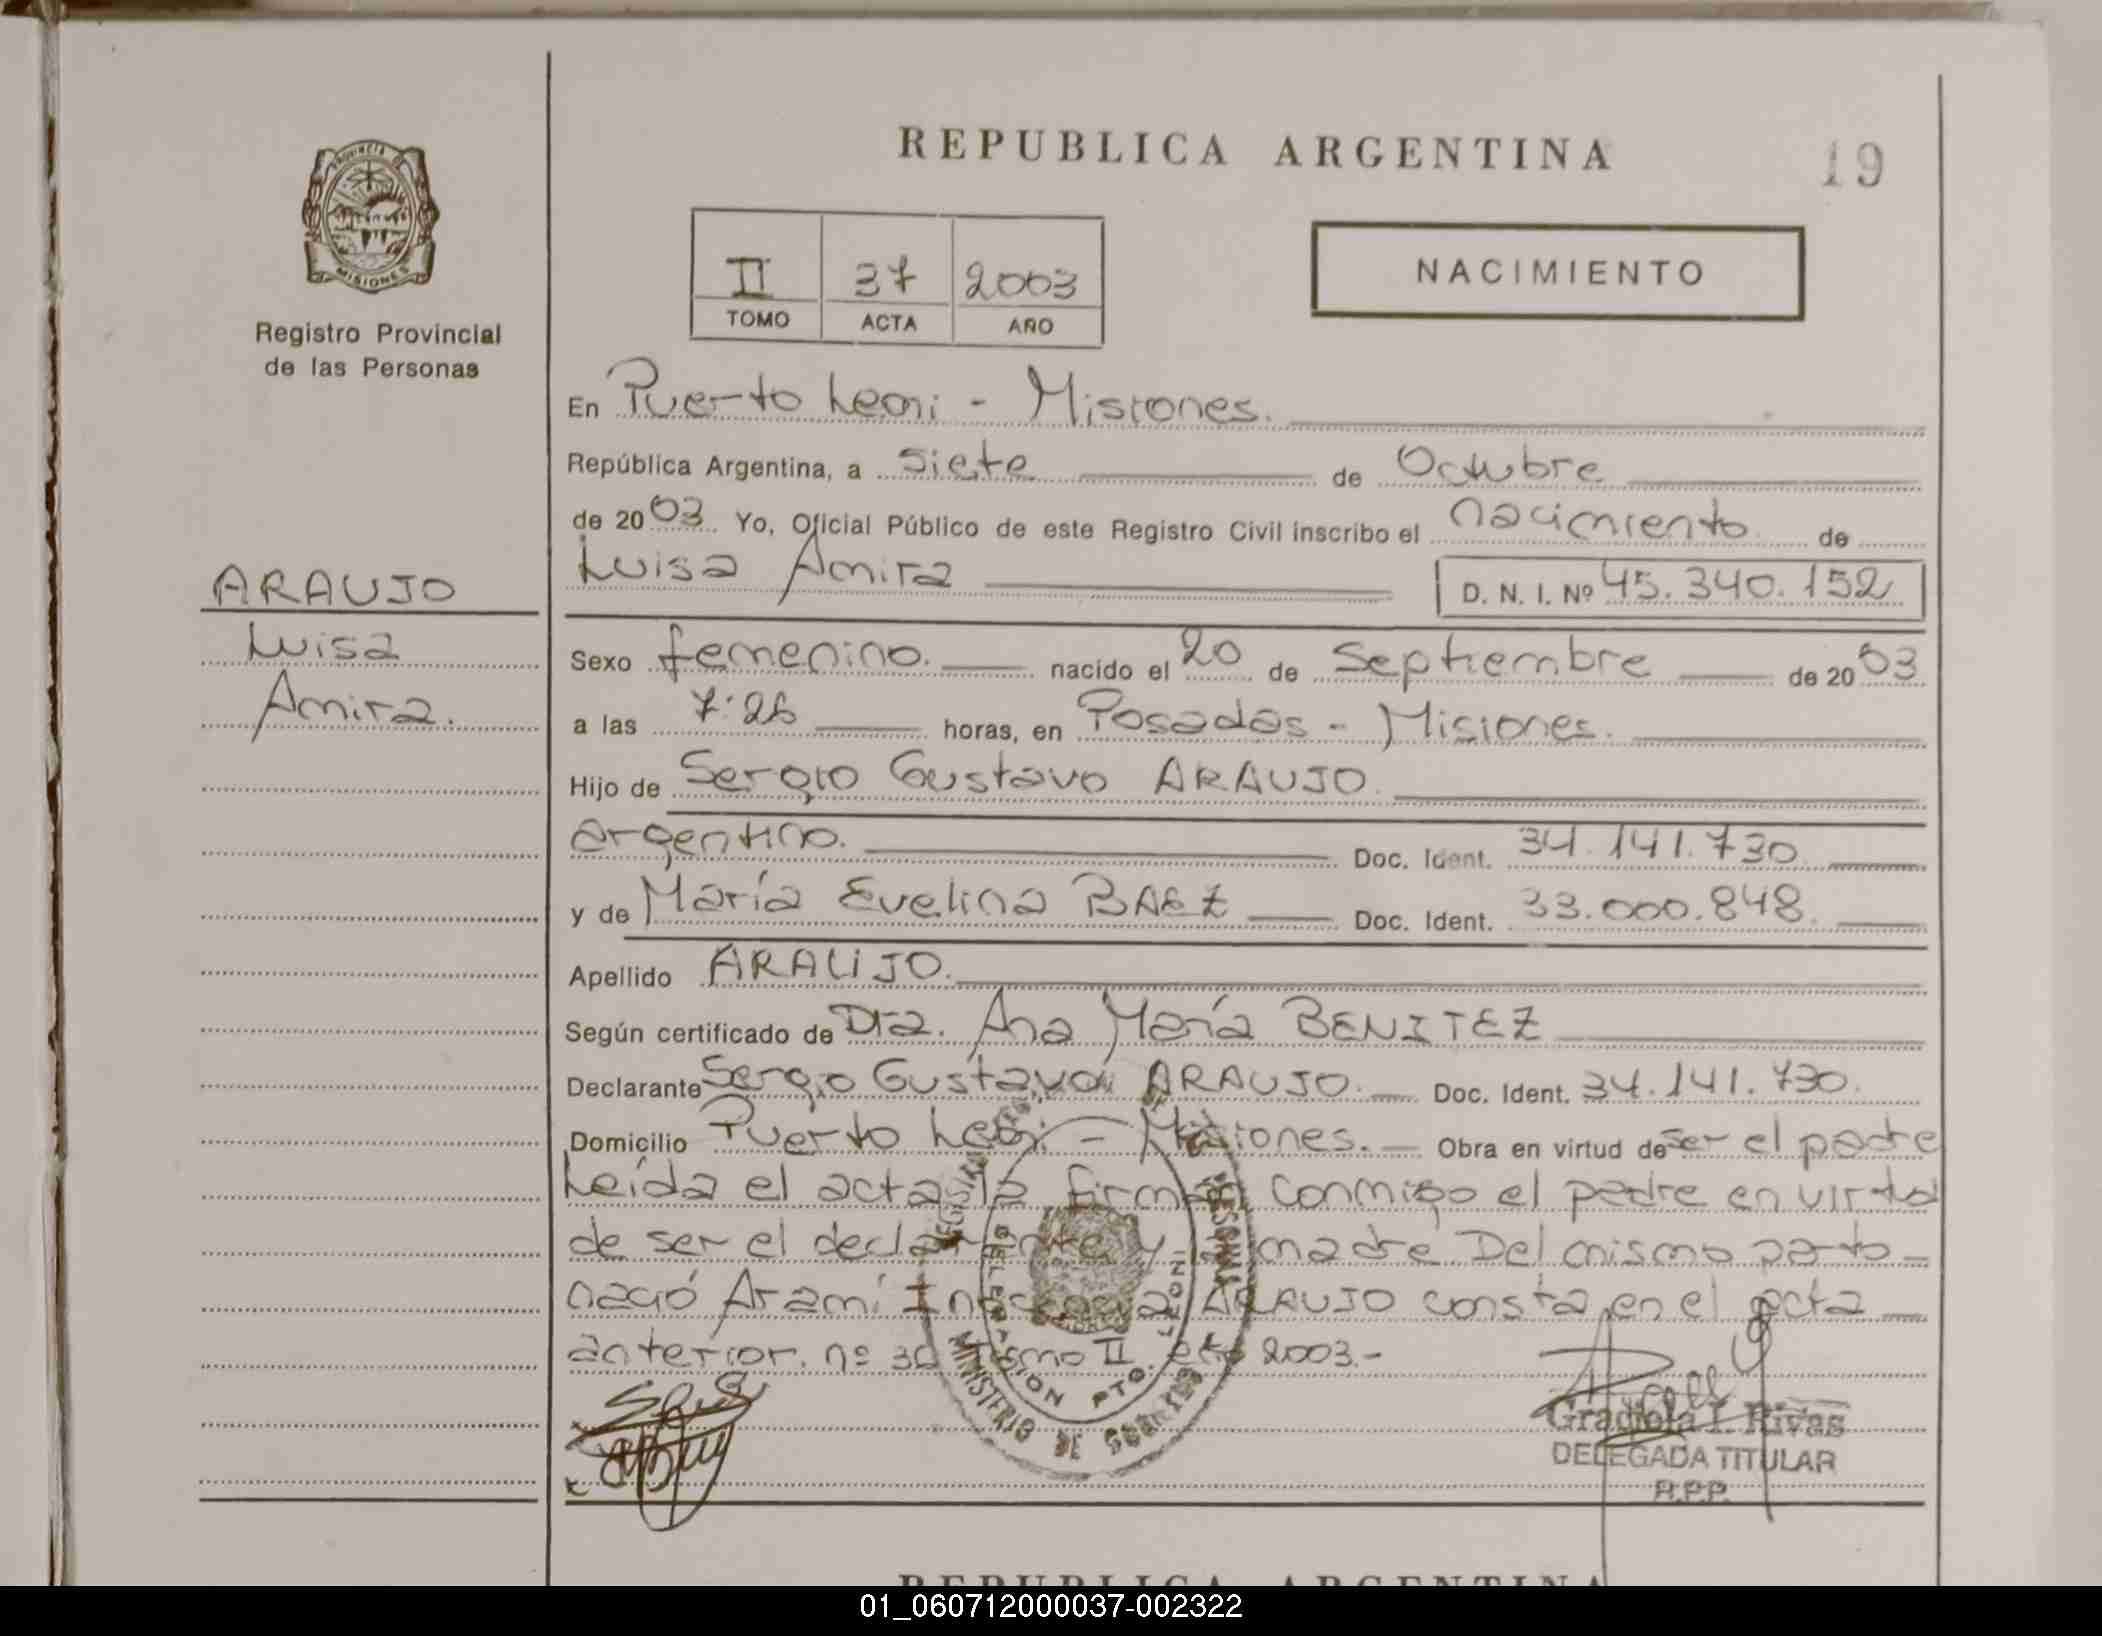 REPUBLICA ARGENTINA
19
PROVINCIA DE
MISIONES
Registro Provincial
de las Personas
II 37 2003
TOMO ACTA AÑO
NACIMIENTO
En Puerto Leoni - Misiones.
República Argentina, a siete de Octubre
de 2003. Yo, Oficial Público de este Registro Civil inscribo el nacimiento de
Luisa Amira D. N. I. Nº 45.340.152
ARAUJO
Luisa
Amira.
Sexo femenino. nacido el 20 de Septiembre de 2003
a las 7:26 horas, en Posadas - Misiones.
Hijo de Sergio Gustavo ARAUJO.
argentino. Doc. Ident. 34.141.730
y de María Evelina BAEZ Doc. Ident. 33.000.848.
Apellido ARAUJO.
Según certificado de Dra. Ana María BENITEZ
Declarante Sergio Gustavo ARAUJO. Doc. Ident. 34.141.730.
Domicilio Puerto Leoni - Misiones. Obra en virtud de ser el padre
Leída el acta la firman conmigo el padre en virtud
de ser el declarante y madre Del mismo parto
nació Aramí ARAUJO consta en el acta
anterior. nº Tomo II. 2003.-
DELEGACION PTO. LEONI
MINISTERIO DE GOBIERNO
Graciela I. Rivas
DELEGADA TITULAR
R.P.P.
REPUBLICA ARGENTINA
01_060712000037-002322